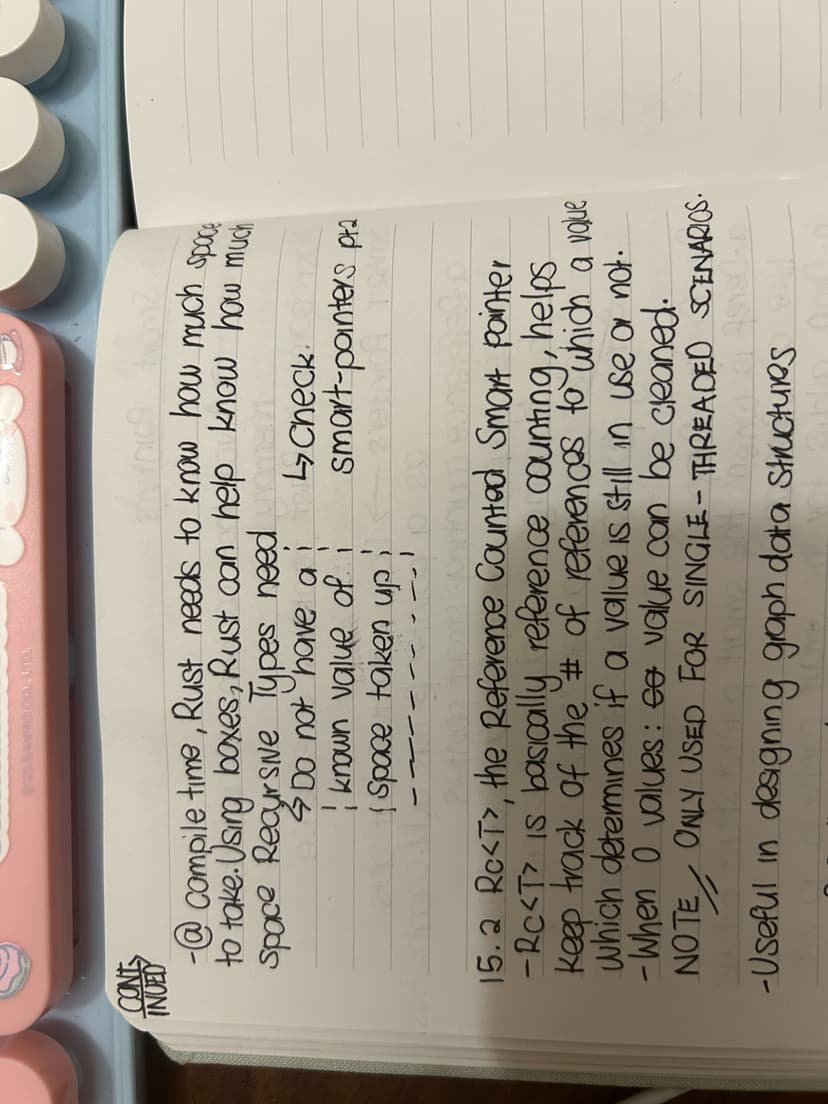 CONT
INUED
-@ compile time, Rust needs to know how much space
to take. Using boxes, Rust can help know how much
space Recursive Types need
↳ Do not have a
known value of
space taken up
↳ Check
smart-pointers pt2
15.2 Rc<T>, the Reference Counted Smart pointer
-Rc<T> is basically reference counting, helps
keep track of the # of references to which a value
which determines if a value is still in use or not.
-When 0 values: value can be cleaned.
NOTE // ONLY USED FOR SINGLE-THREADED SCENARIOS.
-Useful in designing graph data structures